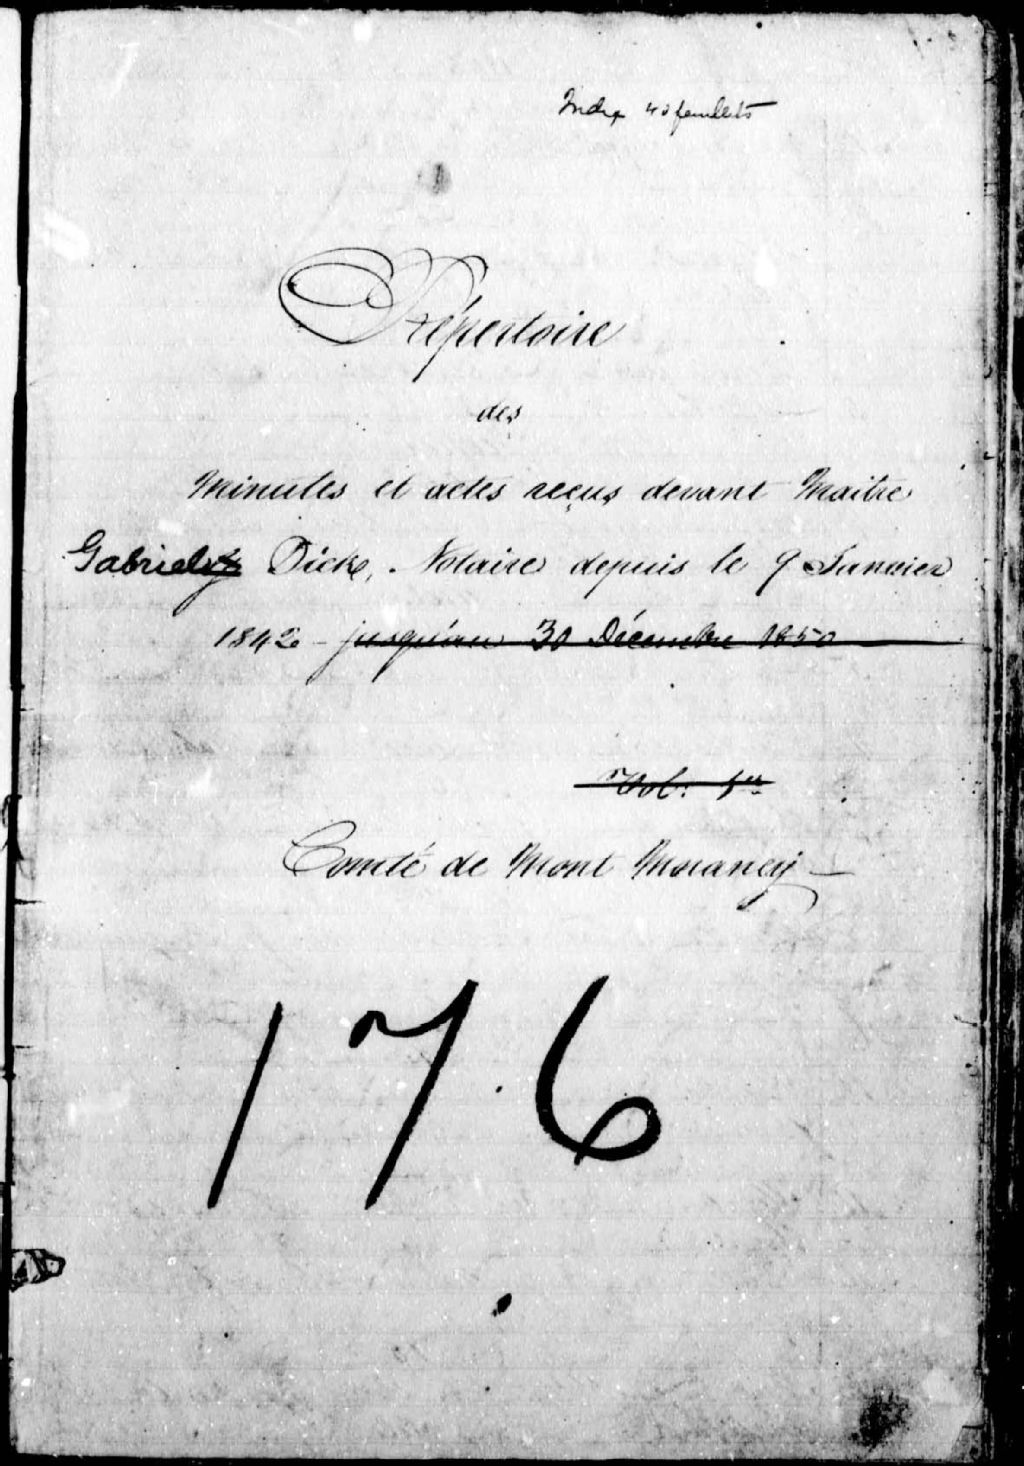 Index 40 feuillets
Répertoire
des
Minutes et actes reçus devant Maître
Gabriel Dick, Notaire depuis le 9 Janvier
1842 - jusqu'au 30 Décembre 1850
Vol: 1er
Comté de Mont Morancy -
176